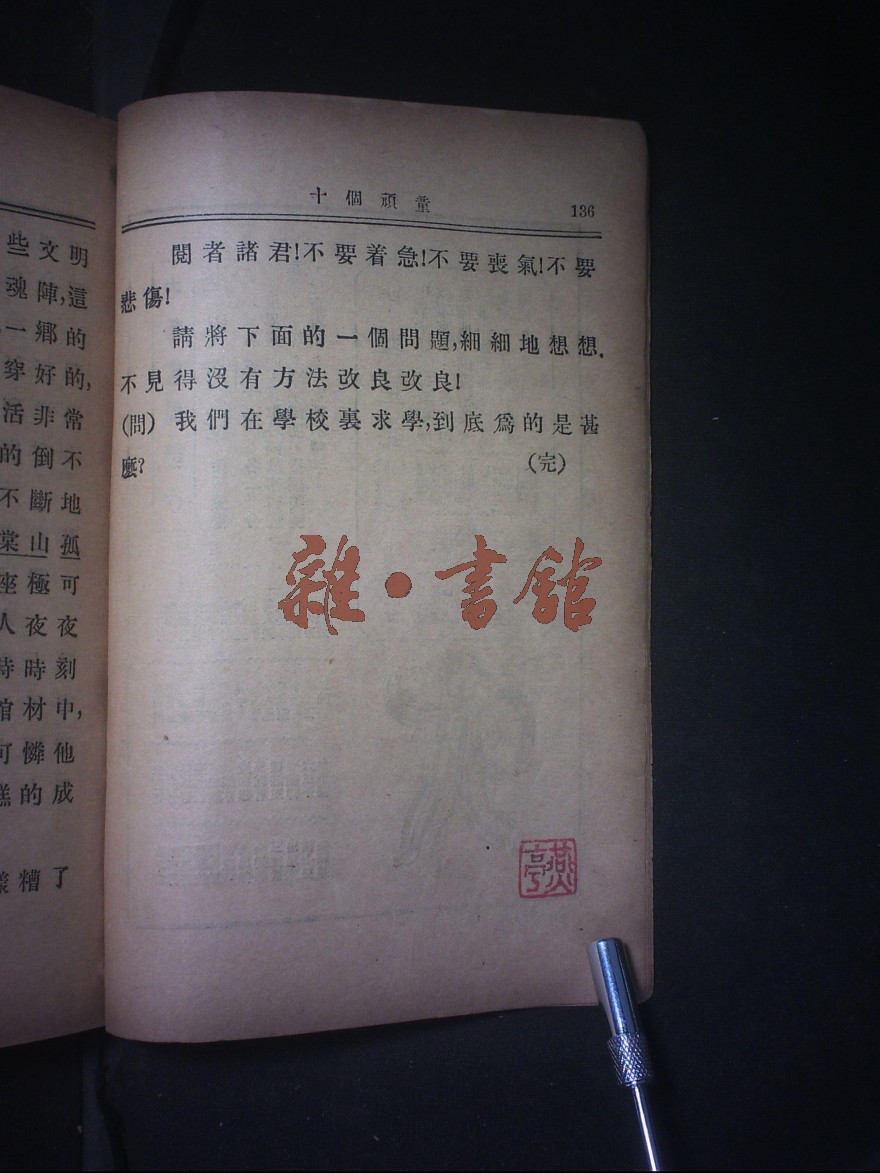 些文明
魂陣,這
一鄉的
穿好的,
活非常
的倒不
不斷地
棠山孤
座極可
人夜夜
時刻
材中,
可憐他
的成
糟了
十個頑童
136
閱者諸君!不要着急!不要喪氣!不要
悲傷!
請將下面的一個問題,細細地想想.
不見得沒有方法改良改良!
(問) 我們在學校裏求學,到底爲的是甚
麼?
(完)
雜·書館
燕亭